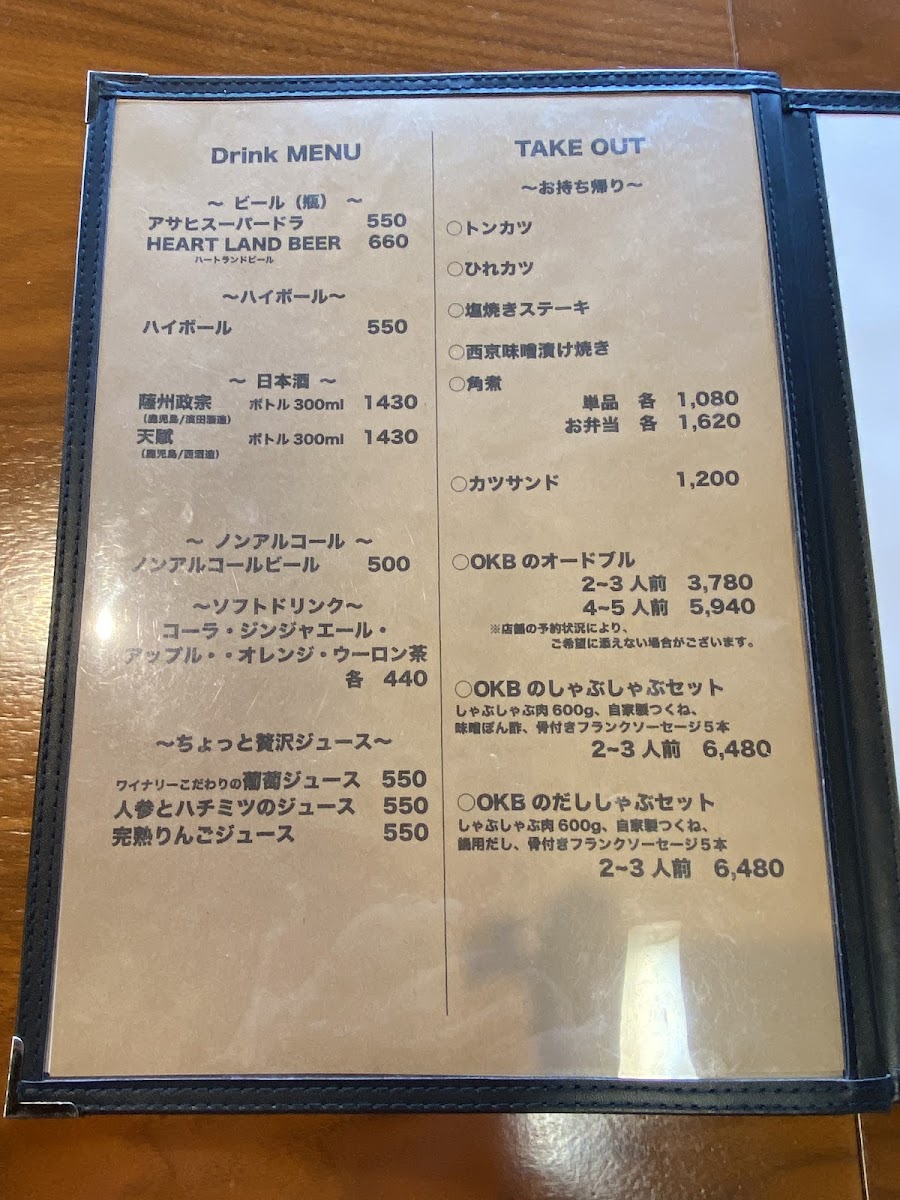 Drink MENU
～ ビール（瓶） ～
アサヒスーパードラ 550
HEART LAND BEER 660
ハートランドビール
～ハイボール～
ハイボール 550
～ 日本酒 ～
薩州政宗 ボトル 300ml 1430
（鹿児島/濵田酒造）
天賦 ボトル 300ml 1430
（鹿児島/西酒造）
～ ノンアルコール ～
ノンアルコールビール 500
～ソフトドリンク～
コーラ・ジンジャエール・
アップル・・オレンジ・ウーロン茶
各 440
～ちょっと贅沢ジュース～
ワイナリーこだわりの葡萄ジュース 550
人参とハチミツのジュース 550
完熟りんごジュース 550
TAKE OUT
～お持ち帰り～
○トンカツ
○ひれカツ
○塩焼きステーキ
○西京味噌漬け焼き
○角煮
単品 各 1,080
お弁当 各 1,620
○カツサンド 1,200
○OKB のオードブル
2~3 人前 3,780
4~5 人前 5,940
※店舗の予約状況により、
ご希望に添えない場合がございます。
○OKB のしゃぶしゃぶセット
しゃぶしゃぶ肉 600g、自家製つくね、
味噌ぽん酢、骨付きフランクソーセージ５本
2~3 人前 6,480
○OKB のだししゃぶセット
しゃぶしゃぶ肉 600g、自家製つくね、
鍋用だし、骨付きフランクソーセージ５本
2~3 人前 6,480